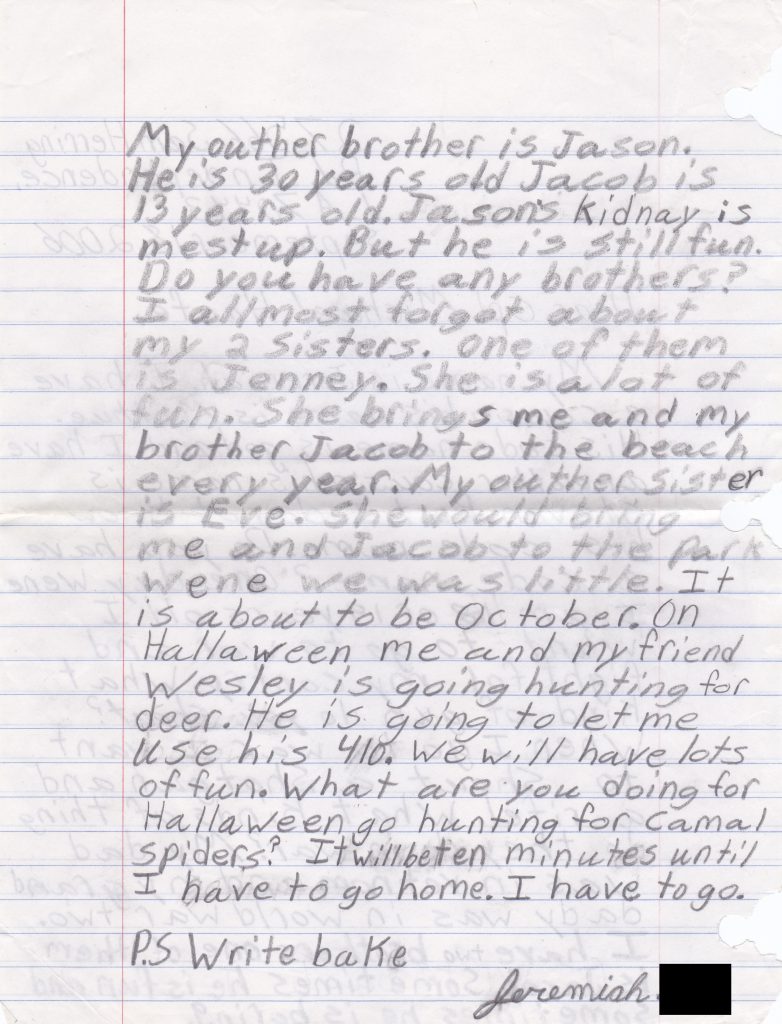 My outher brother is Jason.
He is 30 years old Jacob is
13 years old. Jason's kidnay is
mest up. But he is still fun.
Do you have any brothers?
I allmost forgot about
my 2 sisters. One of them
is Jenney. She is a lot of
fun. She brings me and my
brother Jacob to the beach
every year. My outher sister
is Eve. She would bring
me and Jacob to the park
wene we was little. It
is about to be October. On
Hallaween me and my friend
Wesley is going hunting for
deer. He is going to let me
use his 410. We will have lots
of fun. What are you doing for
Hallaween go hunting for camal
spiders? It will be ten minutes until
I have to go home. I have to go.
P.S Write bake
Jeremiah.